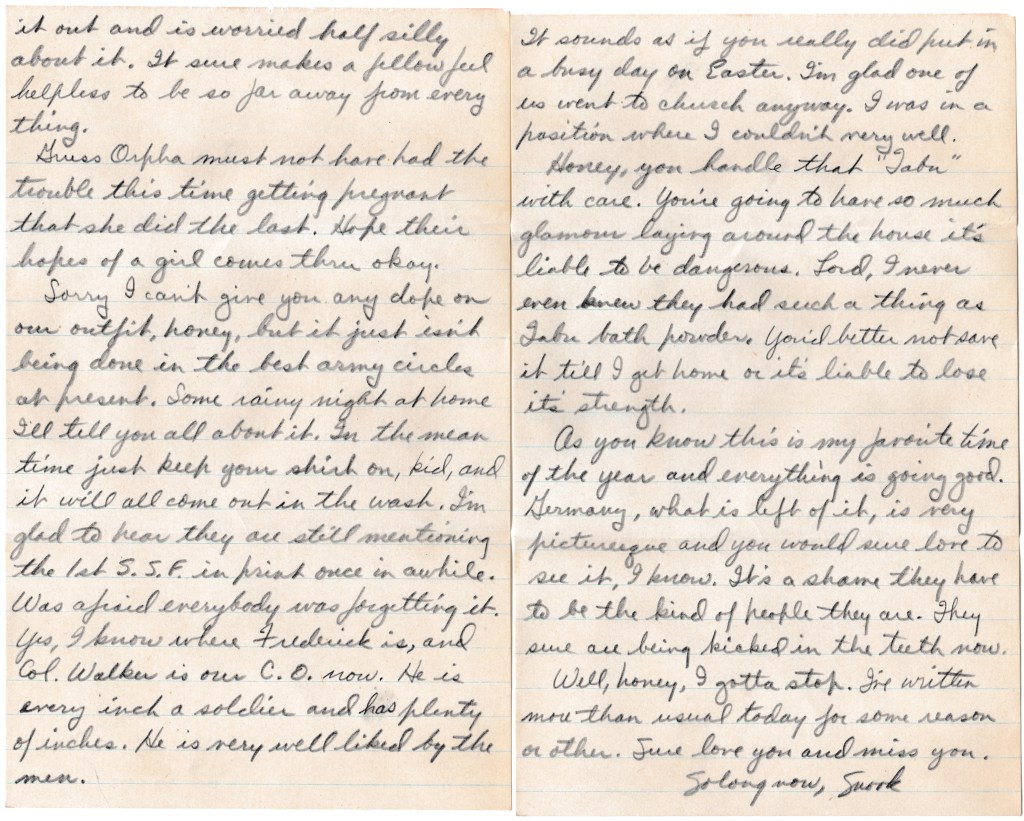 it out and is worried half silly
about it. It sure makes a fellow feel
helpless to be so far away from every
thing.
Guess Orpha must not have had the
trouble this time getting pregnant
that she did the last. Hope their
hopes of a girl comes thru okay.
Sorry I can't give you any dope on
our outfit, honey, but it just isn't
being done in the best army circles
at present. Some rainy night at home
I'll tell you all about it. In the mean
time just keep your shirt on, kid, and
it will all come out in the wash. I'm
glad to hear they are still mentioning
the 1st S.S.F. in print once in awhile.
Was afraid everybody was forgetting it.
Yes, I know where Frederick is, and
Col. Walker is our C.O. now. He is
every inch a soldier and has plenty
of inches. He is very well liked by the
men.
It sounds as if you really did put in
a busy day on Easter. I'm glad one of
us went to church anyway. I was in a
position where I couldn't very well.
Honey, you handle that "Tabu"
with care. You're going to have so much
glamour laying around the house it's
liable to be dangerous. Lord, I never
even knew they had such a thing as
Tabu bath powder. You'd better not save
it till I get home or it's liable to lose
it's strength.
As you know this is my favorite time
of the year and everything is going good.
Germany, what is left of it, is very
picturesque and you would sure love to
see it, I know. It's a shame they have
to be the kind of people they are. They
sure are being kicked in the teeth now.
Well, honey, I gotta stop. I've written
more than usual today for some reason
or other. Sure love you and miss you.
So long now, Snook